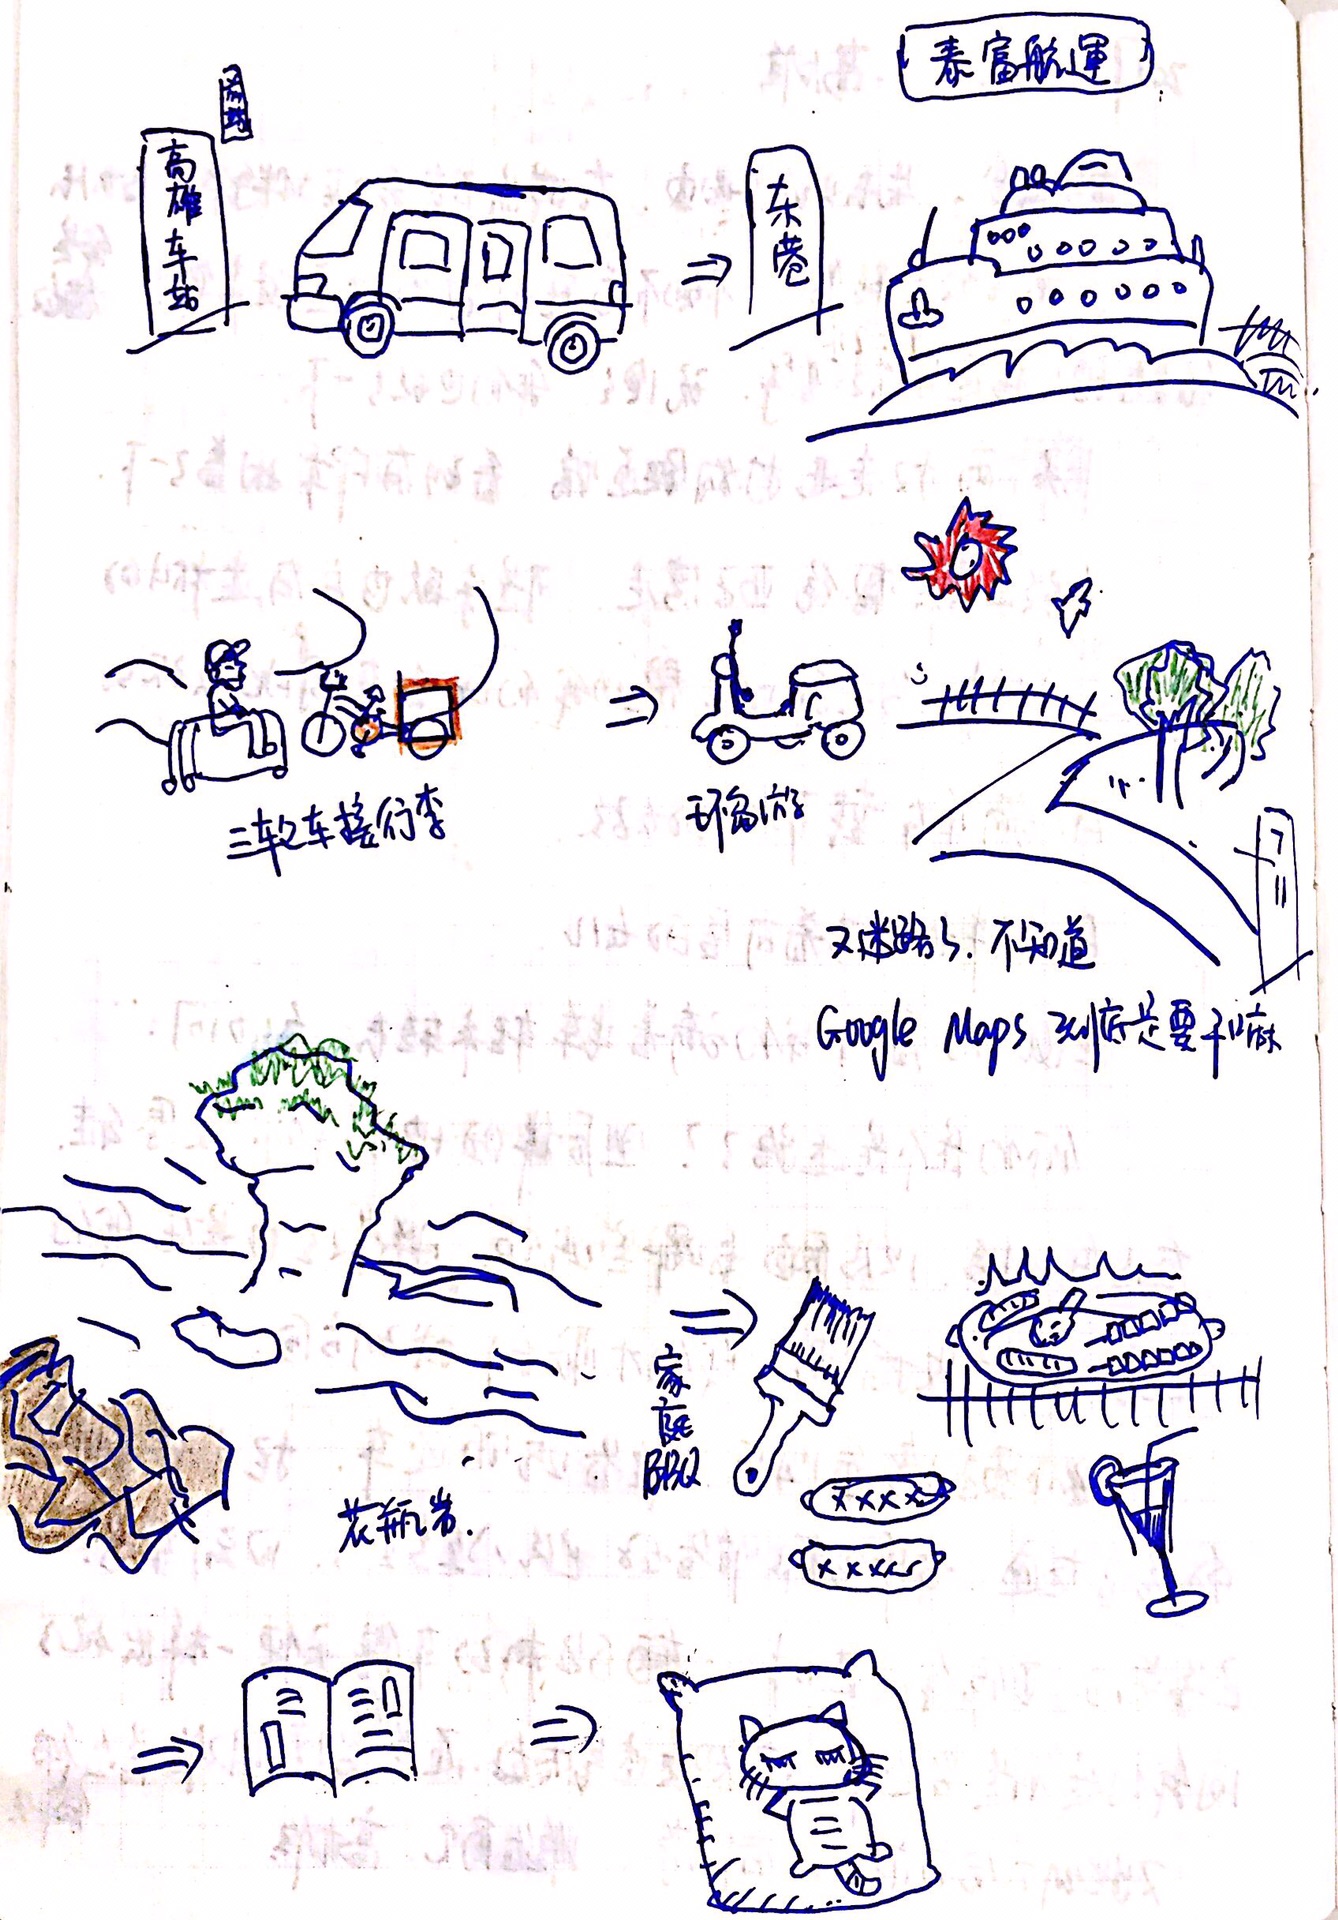 泰富航運
高雄车站
东港
三轮车接行李
环岛游
又迷路了.不知道
Google Maps 到底是要干嘛
家庭
BBQ
花瓶岩.